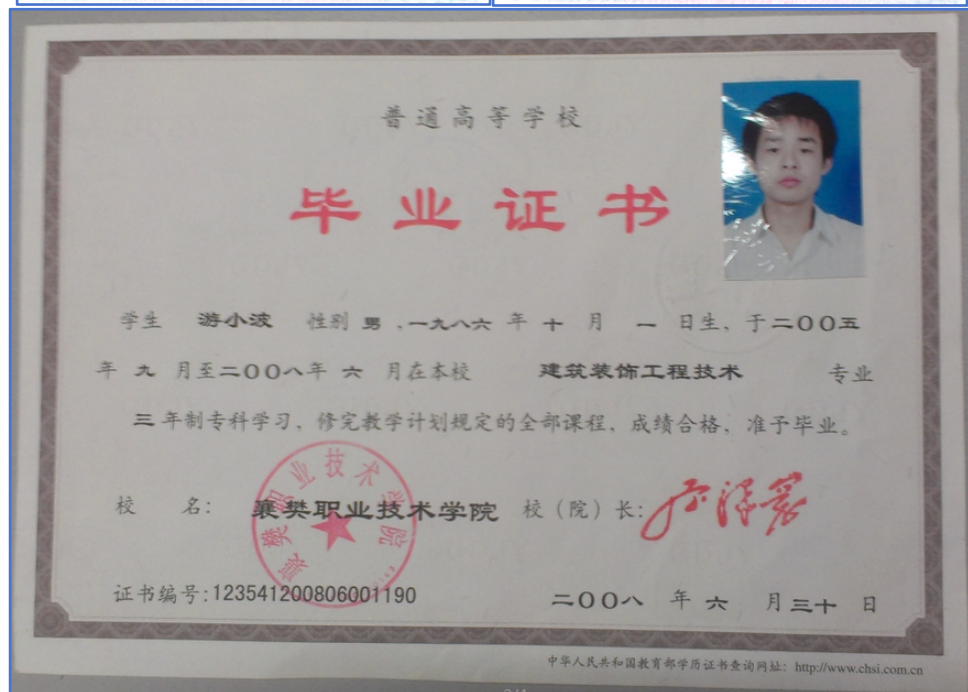 普通高等学校
毕业证书
学生 游小波 性别 男,一九八六 年 十 月 一 日生,于二〇〇五
年 九 月至二〇〇八年 六 月在本校 建筑装饰工程技术 专业
三 年制专科学习,修完教学计划规定的全部课程,成绩合格,准予毕业。
校 名: 襄樊职业技术学院 校(院)长:
襄樊职业技术学院
证书编号:123541200806001190 二〇〇八 年 六 月 三十 日
中华人民共和国教育部学历证书查询网址: http://www.chsi.com.cn